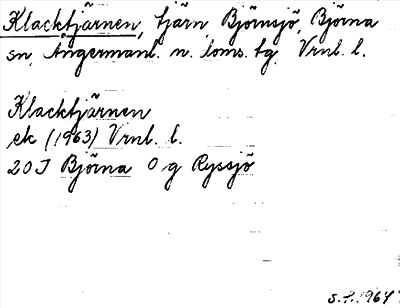 Klacktjärnen, tjärn, Björnsjö, Björna
sn, Ångermanl. n. loms. tg. Vrnl. l.
Klacktjärnen
ek (1963) Vrnl. l.
20 J Björna 0 g Ryssjö
s.f. 1964